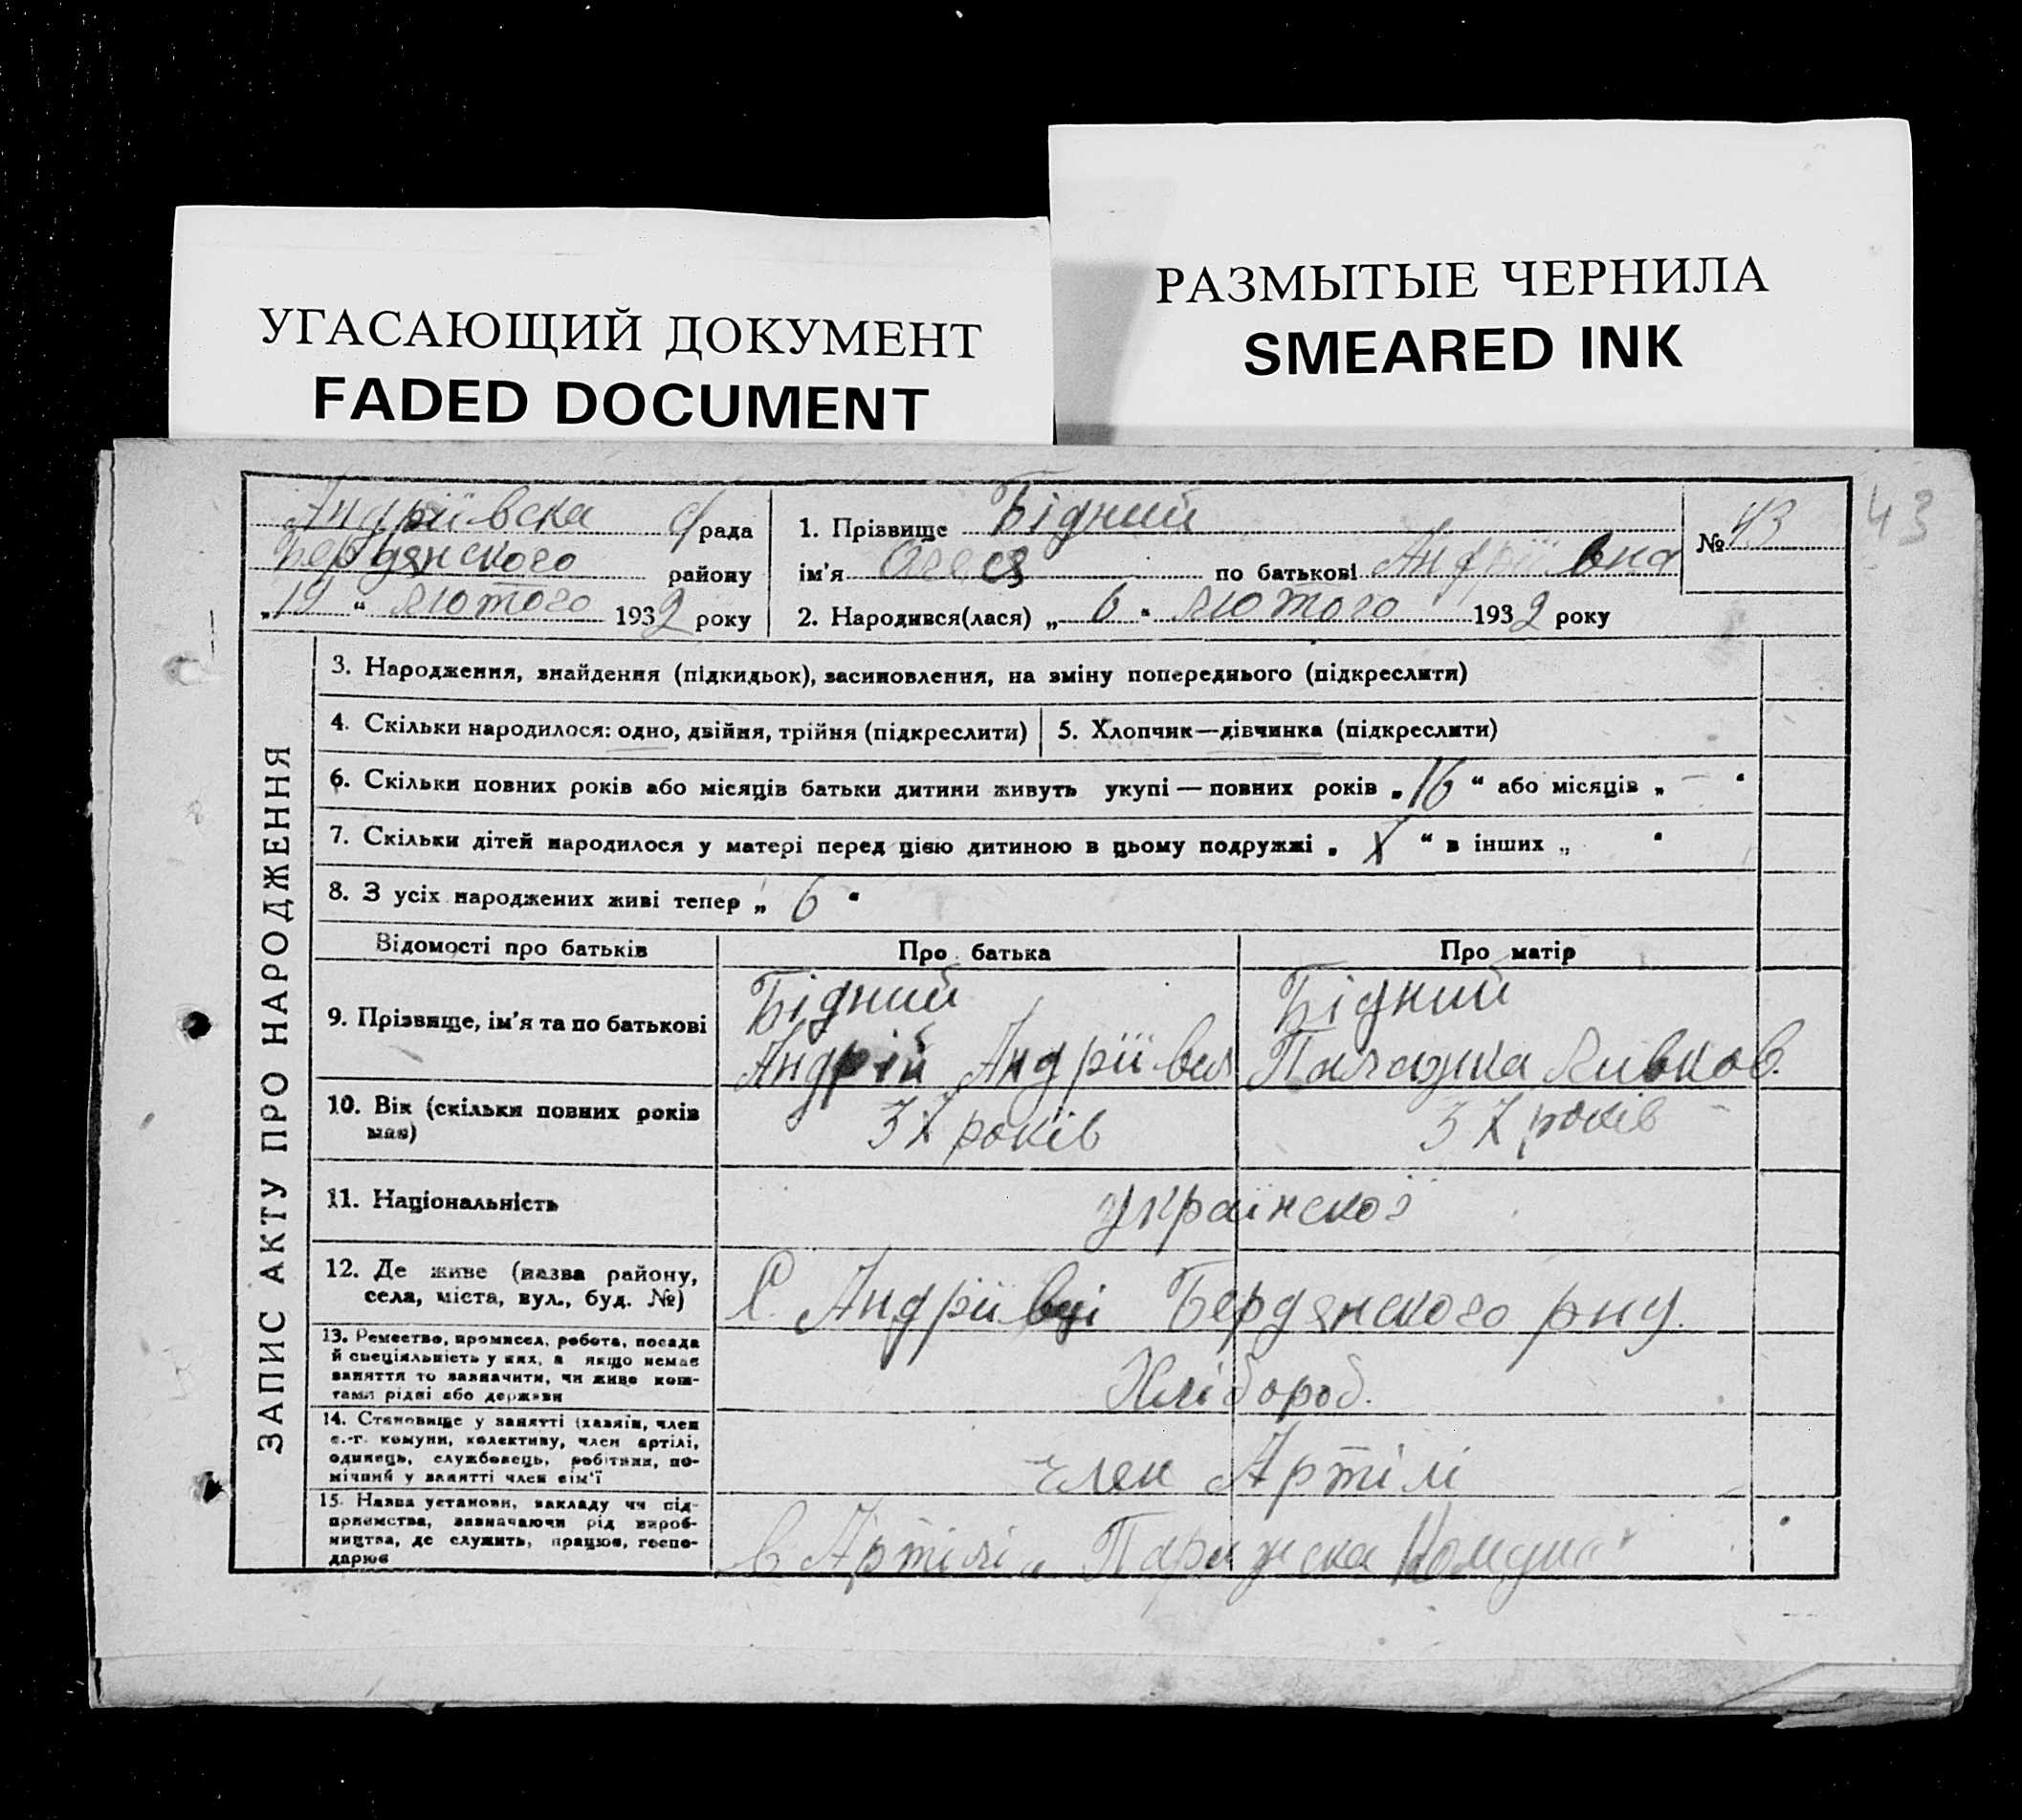 РАЗМЫТЫЕ ЧЕРНИЛА
SMEARED INK
УГАСАЮЩИЙ ДОКУМЕНТ
FADED DOCUMENT
43
Андріївска с/рада
Бердянского району
„19“ лютого 1932 року
1. Прізвище Бідний
ім'я Олеся по батькові Андріївна
2. Народився(лася) „6“ лютого 1932 року
№ 43
ЗАПИС АКТУ ПРО НАРОДЖЕННЯ
3. Народження, знайдення (підкидьок), засиновлення, на зміну попереднього (підкреслити)
4. Скільки народилося: одно, двійня, трійня (підкреслити)
5. Хлопчик—дівчинка (підкреслити)
6. Скільки повних років або місяців батьки дитини живуть укупі — повних років „16“ або місяців „—“
7. Скільки дітей народилося у матері перед цією дитиною в цьому подружжі „ “ в інших „ “
8. З усіх народжених живі тепер „6“
Відомості про батьків
Про батька
Про матір
9. Прізвище, ім'я та по батькові
Бідний
Андрій Андріївич
Бідний
Палажка
10. Вік (скільки повних років має)
37 років
37 років
11. Національність
українскої
12. Де живе (назва району,
села, міста, вул., буд. №)
С. Андріївці Бердянского
13. Ремество, промисел, робота, посада
й спеціяльність у них, а якщо немає
заняття то зазначити, чи живе кош-
тами рідні або держави
Хлібороб.
14. Становище у занятті (хазяїн, член
с.-г. комуни, колективу, член артілі,
одинець, службовець, робітник, по-
мічний у занятті член сім'ї
член Артілі
15. Назва установи, закладу чи під-
приємства, зазначаючи рід вироб-
ництва, де служить, працює, госпо-
дарює
в Артілі „Парижска Комуна“